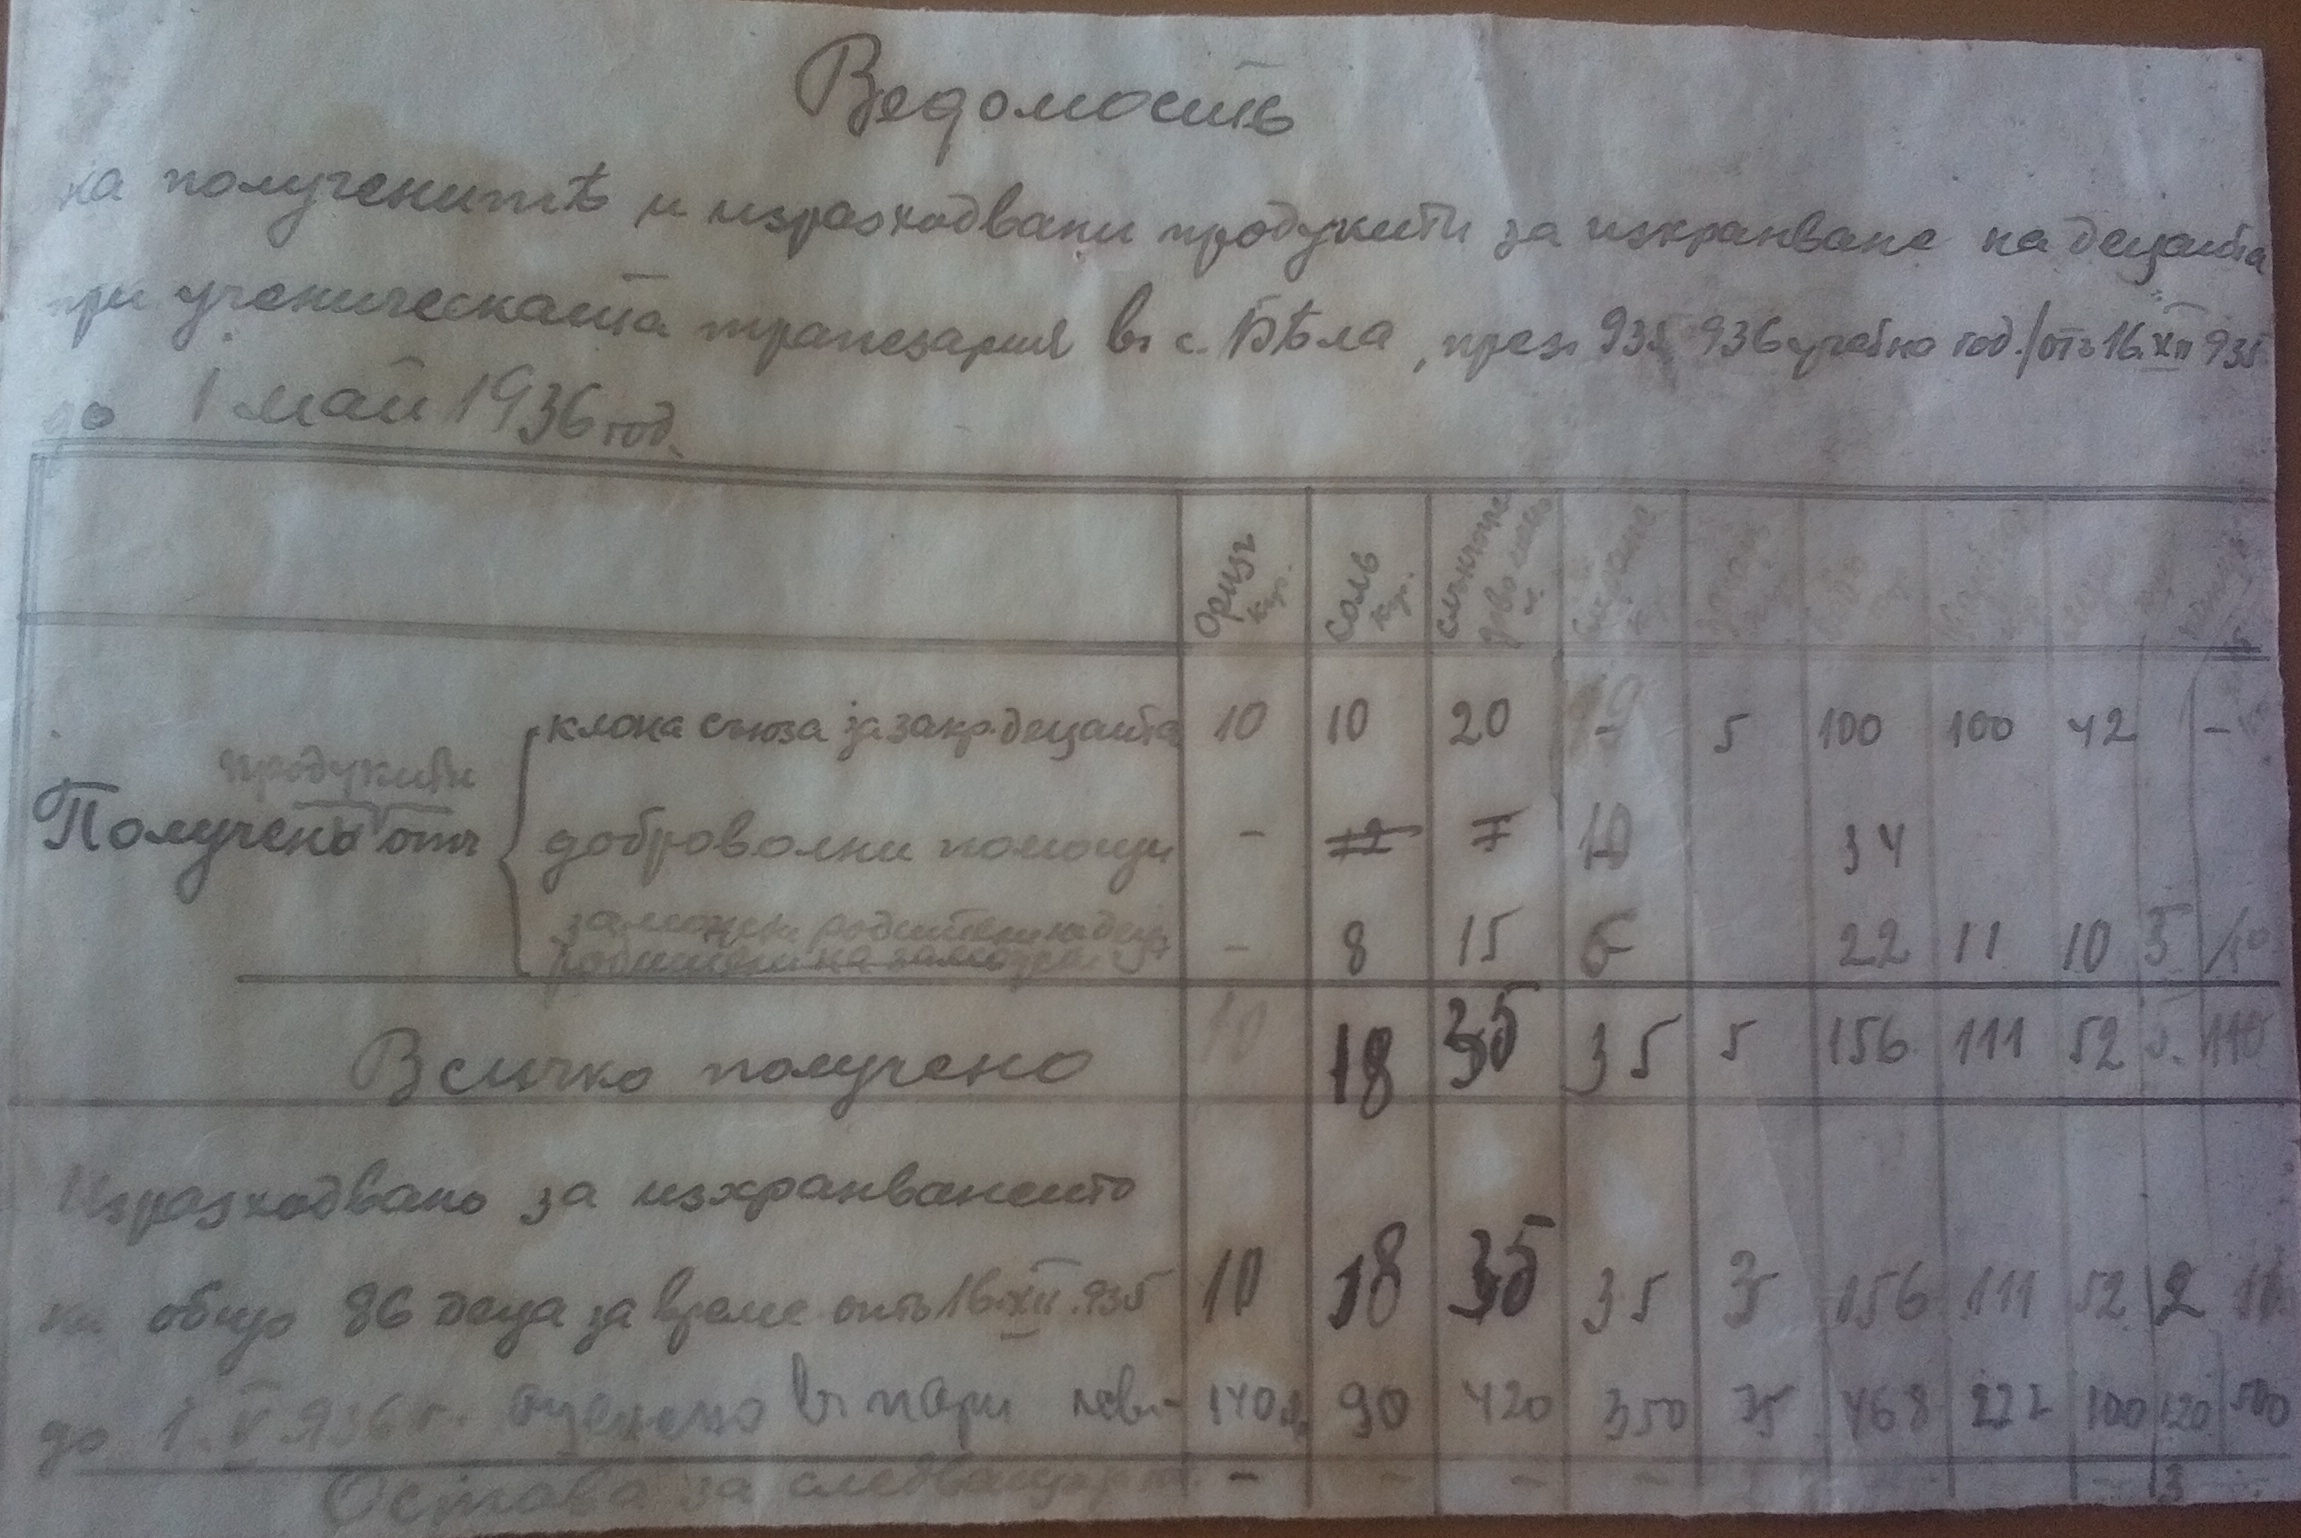 Ведомость
на полученитѣ и изразходвани продукти за изхранване на децата
при ученическата трапезария въ с. Бѣла, презъ 935 936 учебна год. /отъ 16.XII 935
до 1 май 1936 год.
Оризъ кгр. Соль кгр. Слънчогле дово масло л.
клона съюза за закр. децата 10 10 20 - 5 100 100 42 -
продукти
Получено отъ
доброволни помощи - 12 7 10 34
заможни родители на деца
родители на заможни
- 8 15 22 11 10 5 10
Всичко получено 10 18 35 35 5 156 111 52 5 110
Изразходвано за изхранването
на общо 86 деца за време отъ 16.XII.935 10 18 35 35 5 156 111 52 2
до 1.V 936 г. оценено въ пари лева- 140 90 420 350 35 468 222 100 120 500
Остава за следващата - - - - - 3